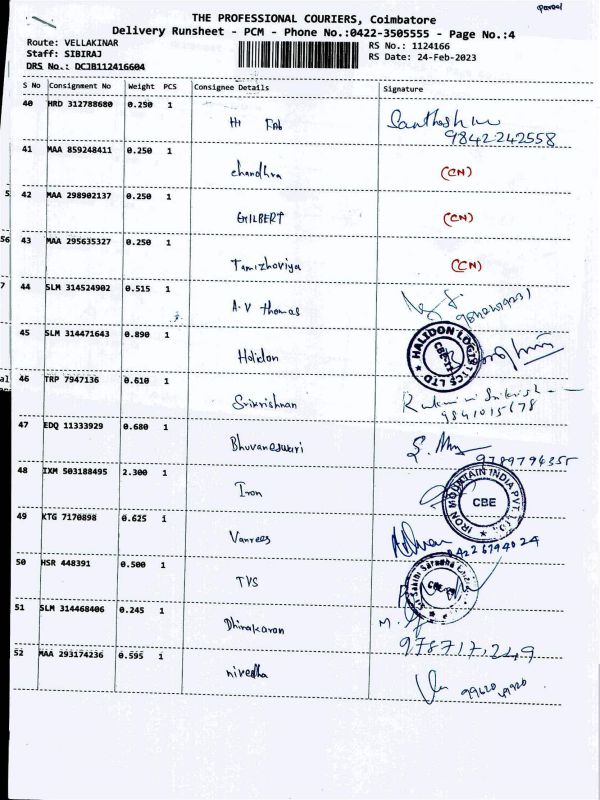 Parcel
THE PROFESSIONAL COURIERS, Coimbatore
Delivery Runsheet - PCM - Phone No.:0422-3505555 - Page No.:4
Route: VELLAKINAR RS No.: 1124166
Staff: SIBIRAJ RS Date: 24-Feb-2023
DRS No.: DCJB112416604
S No Consignment No Weight PCS Consignee Details Signature
40 HRD 312788680 0.250 1
Hi Fab Santhosh
9842242558
41 MAA 859248411 0.250 1
chandhra (CN)
42 MAA 298902137 0.250 1
GILBERT (CN)
43 MAA 295635327 0.250 1
Tamizhoviya (CN)
44 SLM 314524902 0.515 1
A.V thomas
45 SLM 314471643 0.890 1
Halidon
HALIDON LOGISTICS LTD
CBE
46 TRP 7947136 0.610 1
Srikrishnan
9841015678
47 EDQ 11333929 0.680 1
Bhuvaneswari
9789794355
48 IXM 503188495 2.300 1
Iron
IRON MOUNTAIN INDIA PVT. LTD.
CBE
49 KTG 7170898 0.625 1
Vanrees
0422 6194024
50 HSR 448391 0.500 1
TVS
51 SLM 314468406 0.245 1
Dhinakaran
52 MAA 293174236 0.595 1
nivedha
56